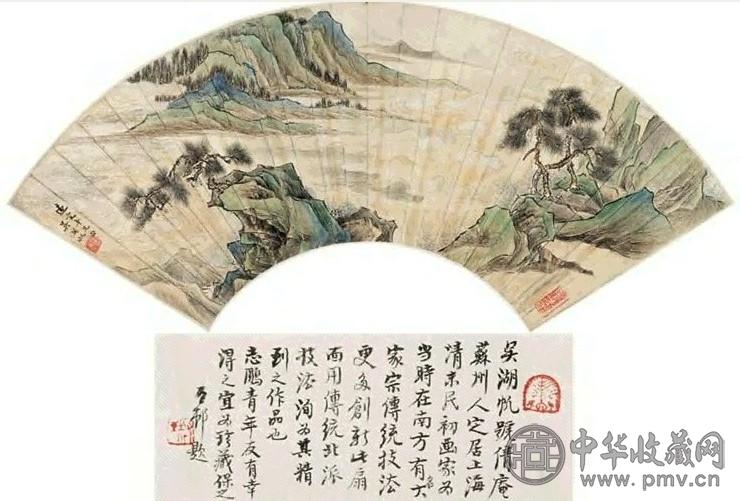 吳湖帆號倩庵
蘇州人定居上海
清末民初画家为
当時在南方有名大
家宗傳統技法
更多創新此扇
面用傳統北派
技法洵为其精
到之作品也
志鵬青年友有幸
得之宜为珍藏保之
邨题
中华收藏网
www.pmv.cn